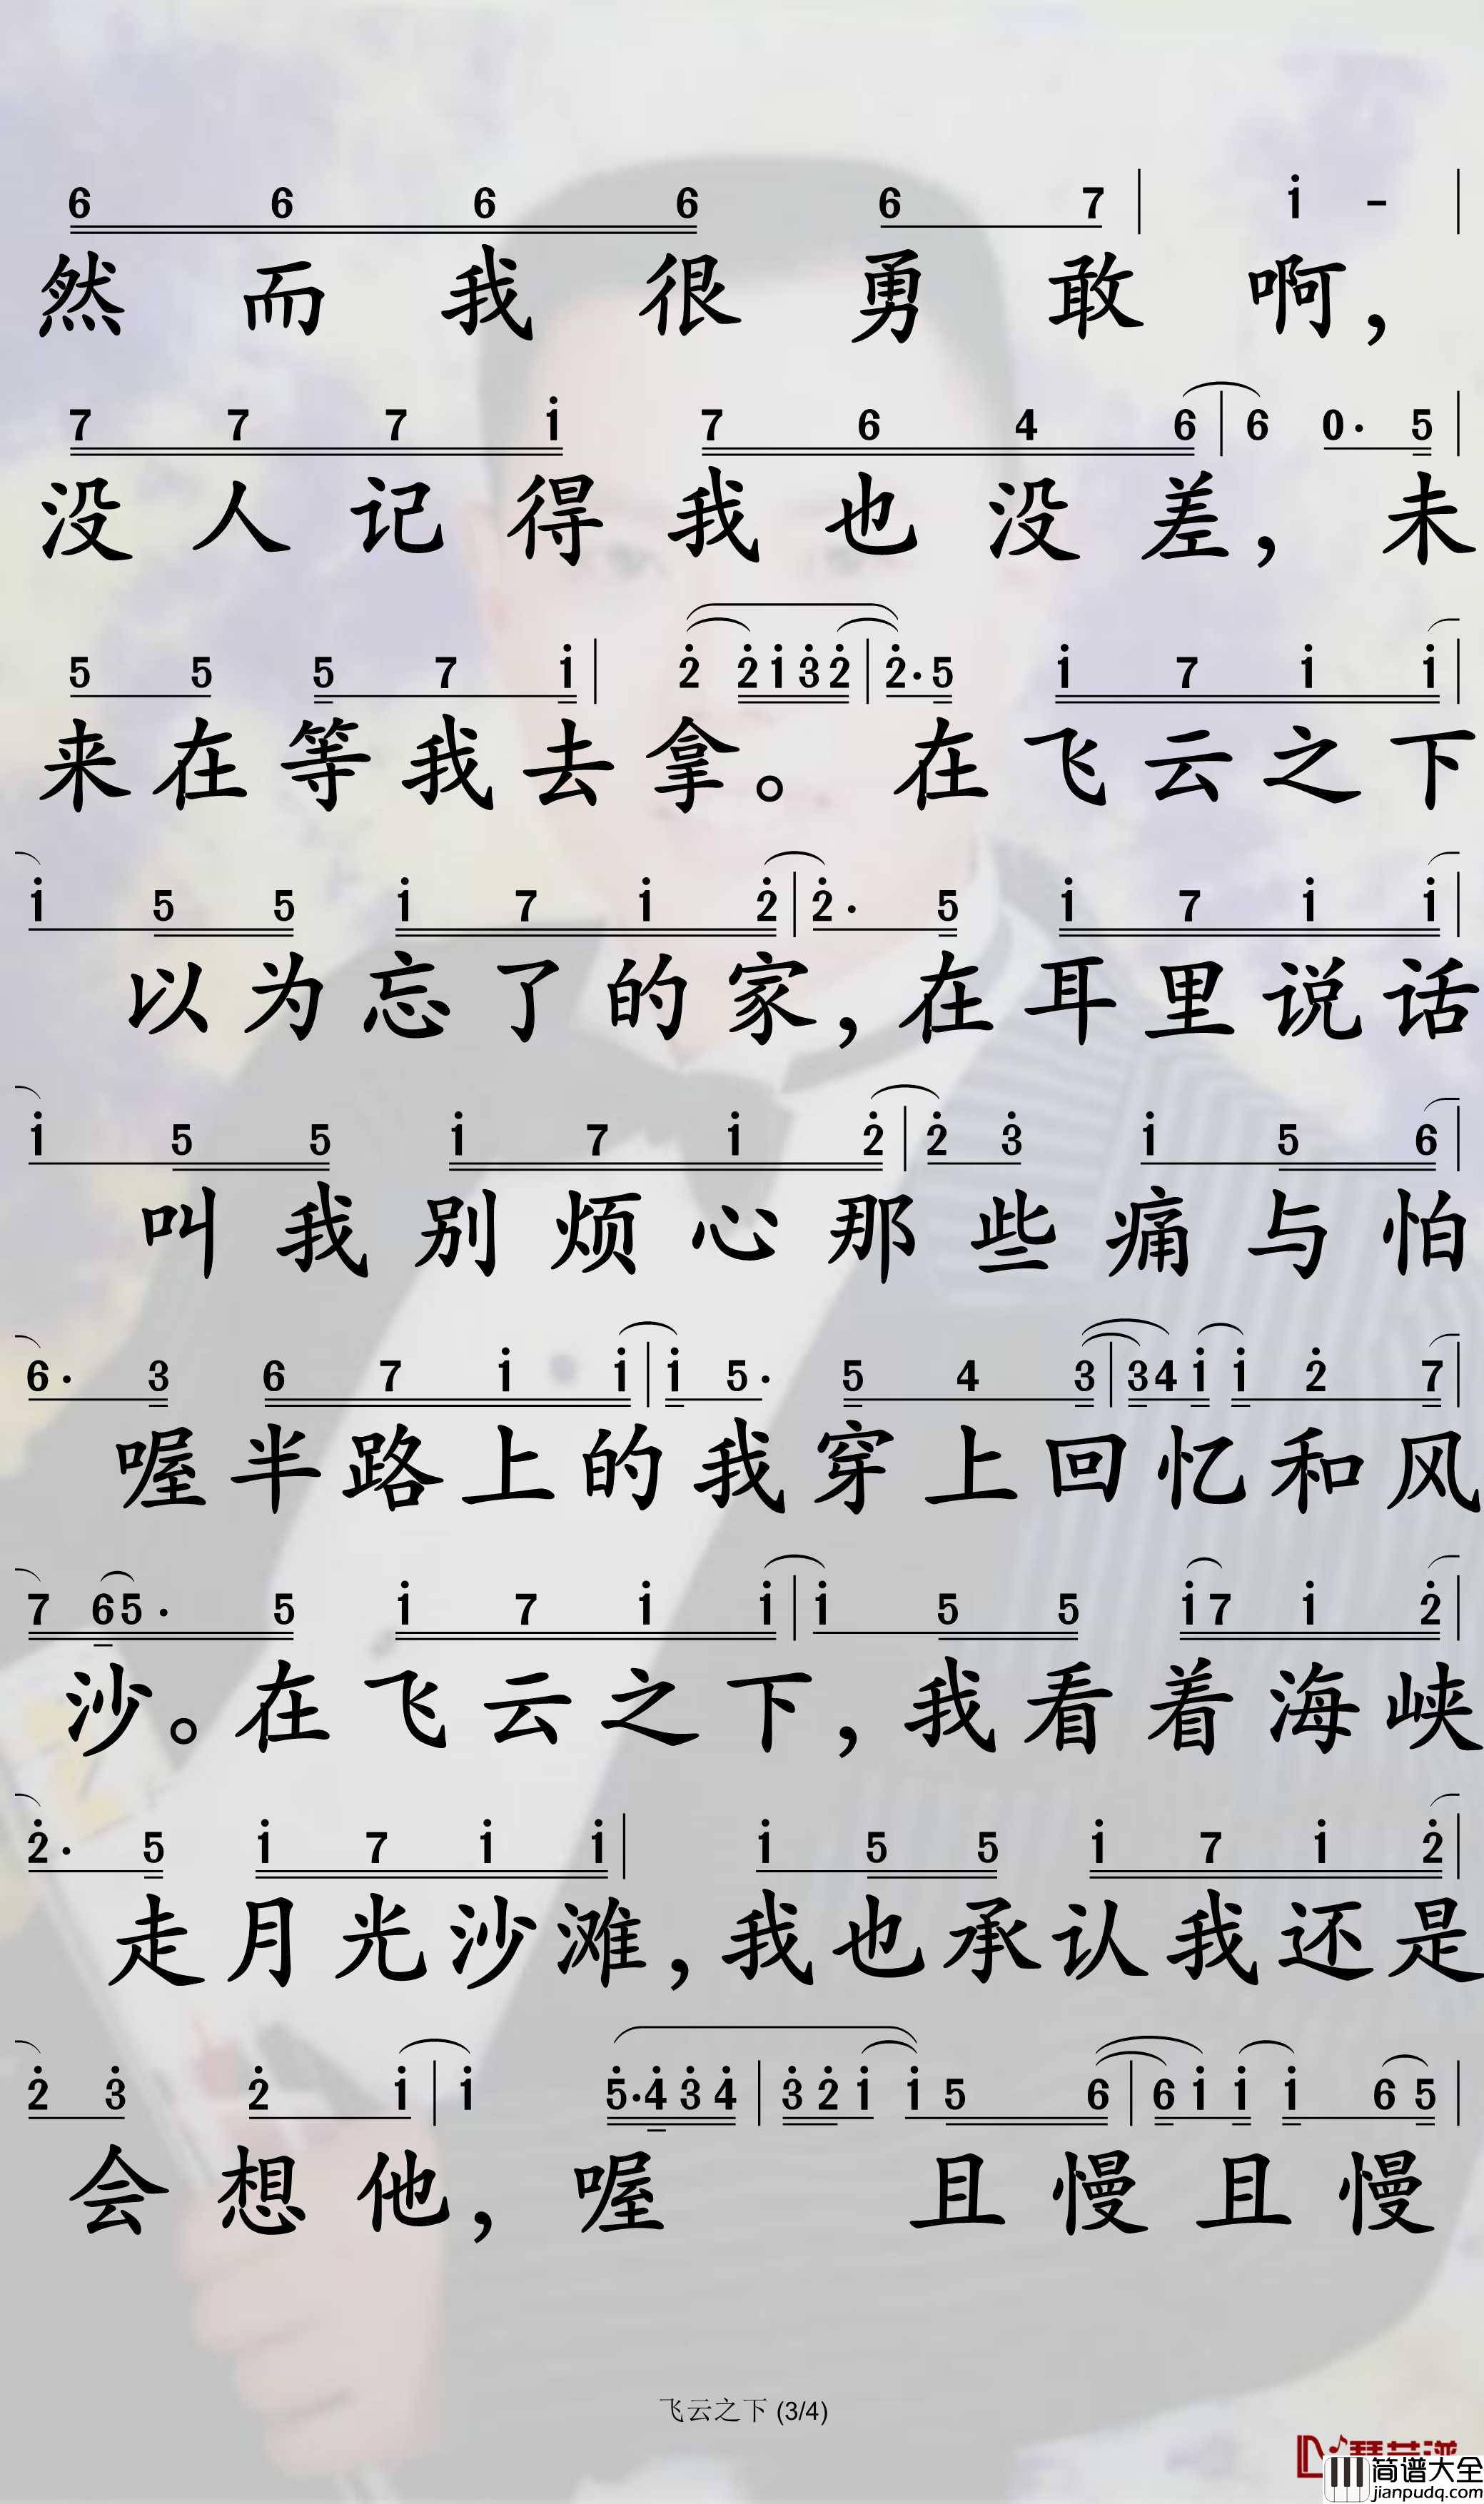 6 6 6 6 6 7 | i - |
然而我很勇敢啊，
7 7 7 i 7 6 4 6 | 6 0· 5 |
没人记得我也没差，未
5 5 5 7 i | 2̇ 2̇ i 3̇ 2̇ | 2̇· 5 i 7 i i |
来在等我去拿。在飞云之下
i 5 5 i 7 i 2̇ | 2̇· 5 i 7 i i |
以为忘了的家，在耳里说话
i 5 5 i 7 i 2̇ | 2̇ 3̇ i 5 6 |
叫我别烦心那些痛与怕
6· 3 6 7 i i | i 5· 5 4 3 | 3 4 i i 2̇ 7 |
喔半路上的我穿上回忆和风
7 6 5· 5 i 7 i i | i 5 5 i 7 i 2̇ |
沙。在飞云之下，我看着海峡
2̇· 5 i 7 i i | i 5 5 i 7 i 2̇ |
走月光沙滩，我也承认我还是
2̇ 3̇ 2̇ i | i 5̇· 4̇ 3̇ 4̇ | 3̇ 2̇ i i 5 6 | 6 i i i 6 5 |
会想他，喔 且慢且慢
飞云之下 (3/4)
简谱大全
jianpudq.com